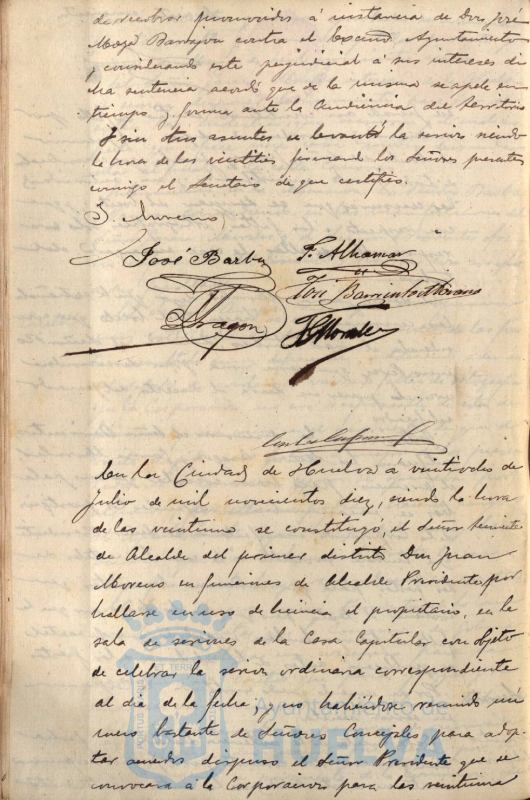 de promovidos á instancia de Don José
contra el Excmo Ayuntamiento
y considerando este perjudicial á sus intereses di-
cha sentencia acordó que de la misma se apele en
tiempo y forma ante la Audiencia del territorio
Y sin otros asuntos se levantó la sesion siendo
la hora de las firmando los Señores presentes
conmigo el Secretario de que certifico.
J. Moreno
José Barba F. Alhamar
José Barrientos Moreno
Aragon Morales
En la Ciudad de Huelva á veintidos de
Julio de mil novecientos diez, siendo la hora
de las veintiuna se constituyó, el Señor teniente
de Alcalde del primer distrito Don Juan
Moreno en funciones de Alcalde Presidente por
hallarse en uso de licencia el propietario, en la
sala de sesiones de la Casa Capitular con objeto
de celebrar la sesion ordinaria correspondiente
al dia de la fecha; y no habiendose reunido nú-
mero bastante de Señores Concejales para adop-
tar acuerdos dispuso el Señor Presidente que se
convocara á la Corporacion para las veintiuna
Ayuntamiento de
HUELVA